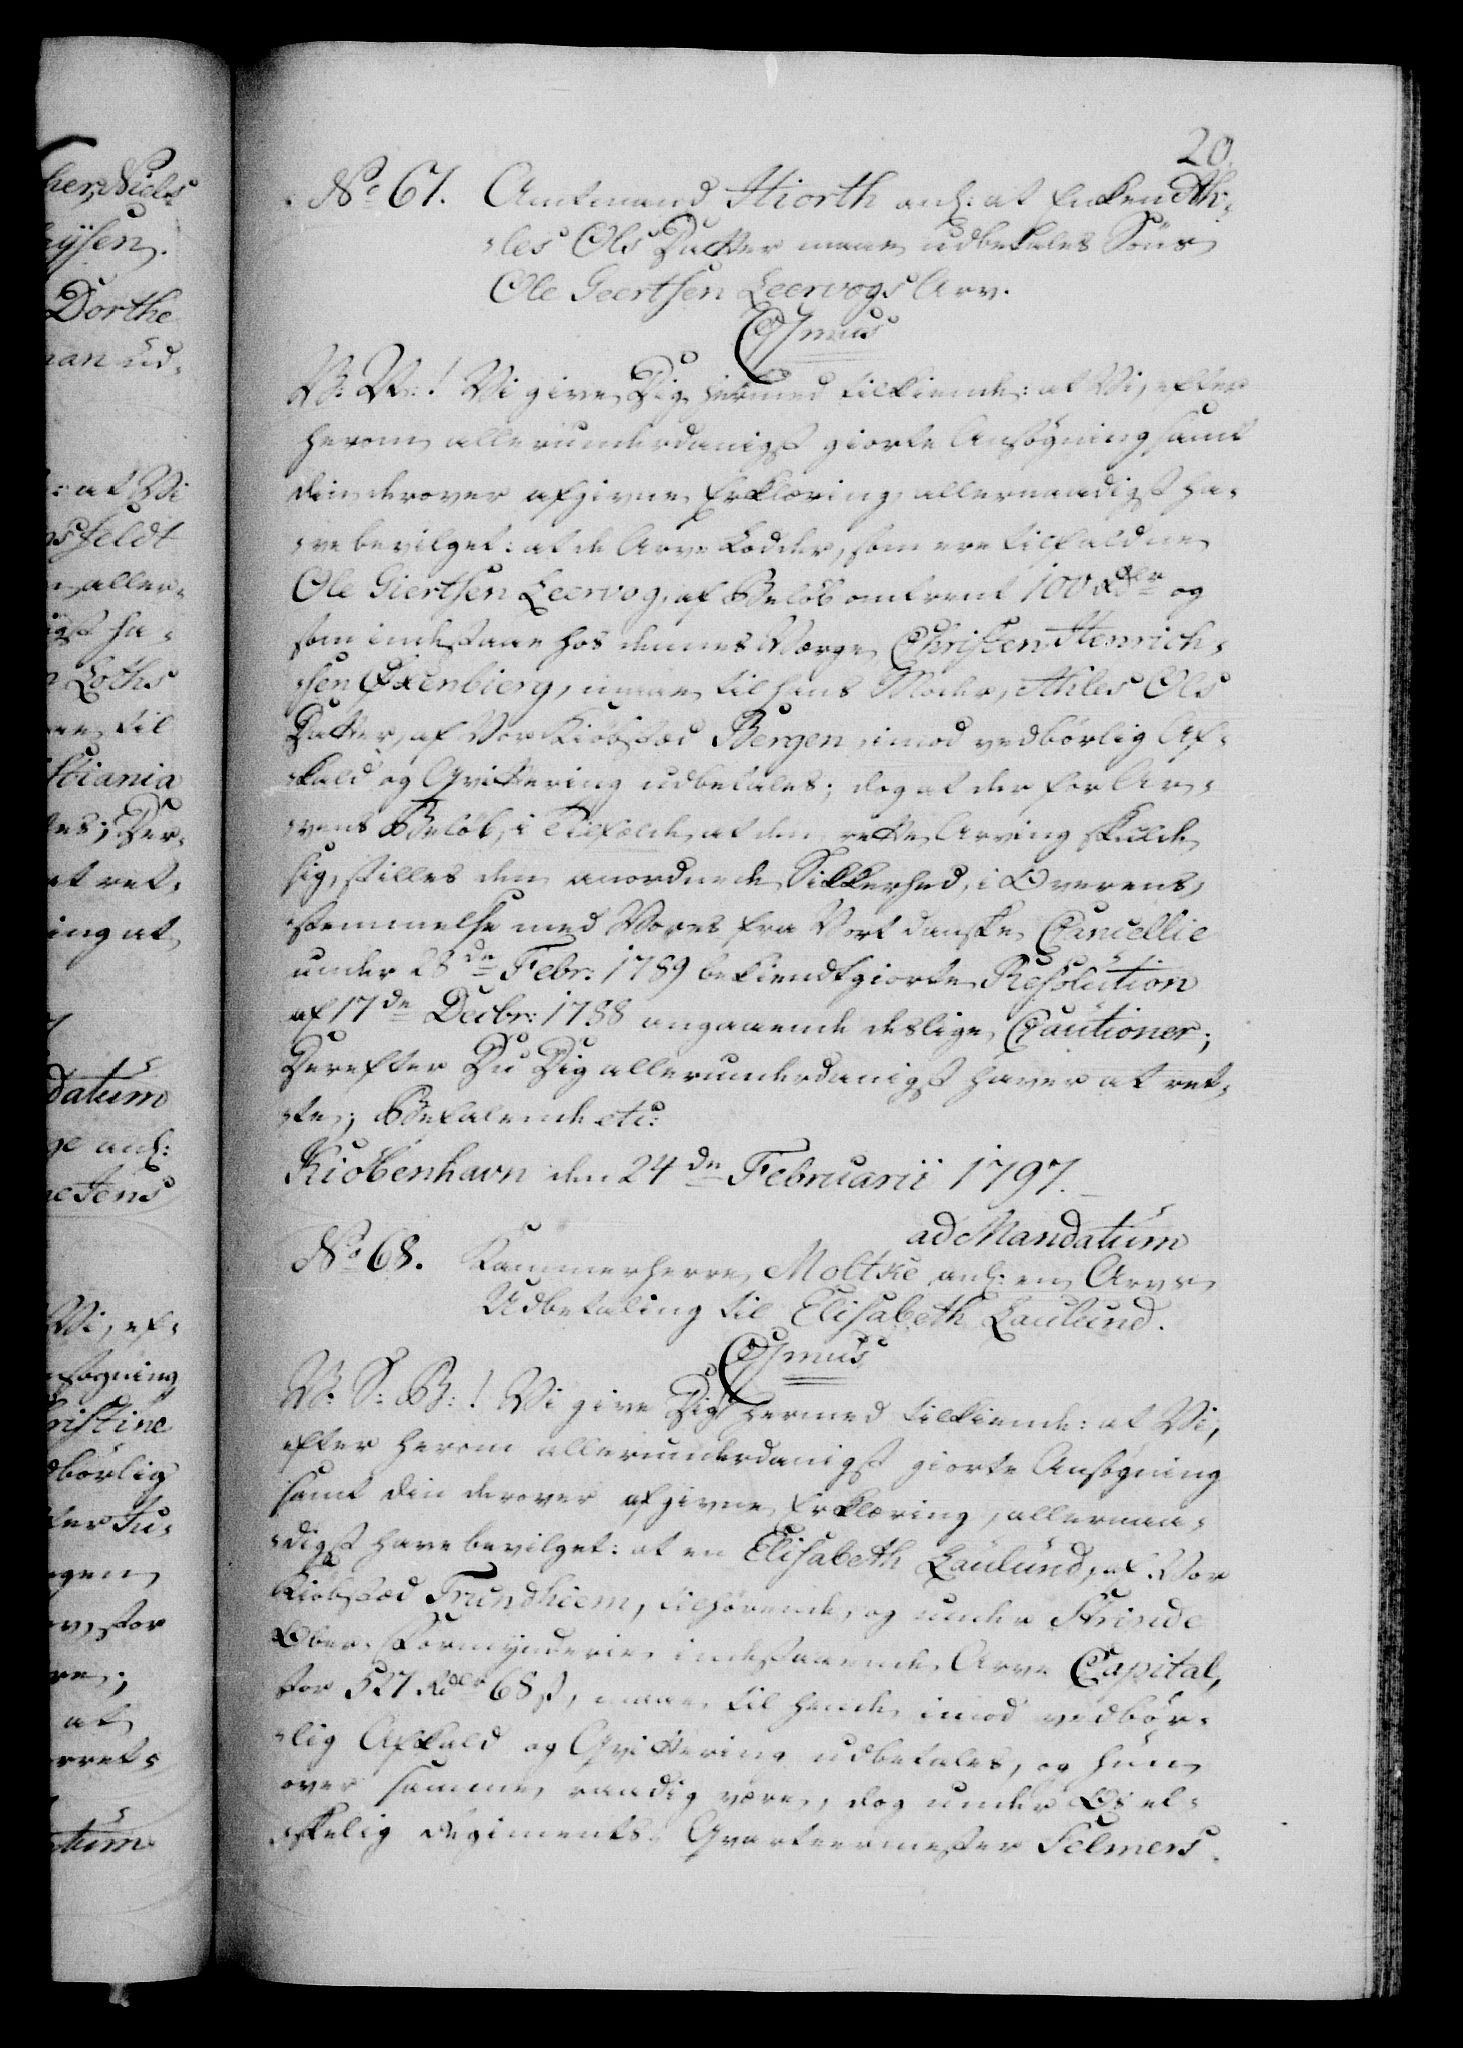 20.
No 67. Amtmand Hiorth anl: at Enken Ah-
-les Ols Datter maae udbetales Søns
Ole Geertsen Leervogs Arv.
C7mus
V: V:! Vi give Dig hermed tilkiende: at Vi, efter
herom allerunderdanigst giorte Ansøgning samt
din derover afgivne Erklæring allernaadigst ha-
-ve bevilget: at de Arve Lodder, som ere tilfaldne
Ole Giertsen Leervog, af Beløb omtrent 100 Rdlr og
som indestaae hos dennes Værge Christen Henrich-
-sen Øxenbierg, maae til hans Moder, Ahles Ols
Datter, af Vor Kiøbstæd Bergen, imod vedbørlig Af-
-kald og Qvittering udbetales; dog at der for Ar-
-vens Beløb, i Tilfælde at den rette Arving skulde
sig, stilles den anordnede Sikkerhed, i Overens-
-stemmelse med Vores fra Vort danske Cancellie
under 28de Febr: 1789 bekiendtgiorte Resolution
af 17de Decbr: 1788 angaaende deslige Cautioner;
Derefter Du Dig allerunderdanigst haver at ret-
-te; Befalende etc:
Kiøbenhavn den 24de Februarii 1797.
ad Mandatum
No 68. Kammerherre Moltke anl: en Arvs
Udbetaling til Elisabeth Laulund.
C7mus
V: S: B:! Vi give Dig hermed tilkiende: at Vi,
efter herom allerunderdanigst giorte Ansøgning
samt din derover afgivne Erklæring, allernaa-
-digst have bevilget: at en Elisabeth Laulund, af Vor
Kiøbstæd Trundhiem, tilhørende, og under Strinde
Ober-Formynderie indestaaende Arve Capital,
stor 527 Rdlr 68 s, maae til hende imod vedbør-
-lig Afkald og Qvittering udbetales, og hun
over samme raadig være, dog under Os el-
-skelig Regiments-Qvarteermester Selmers